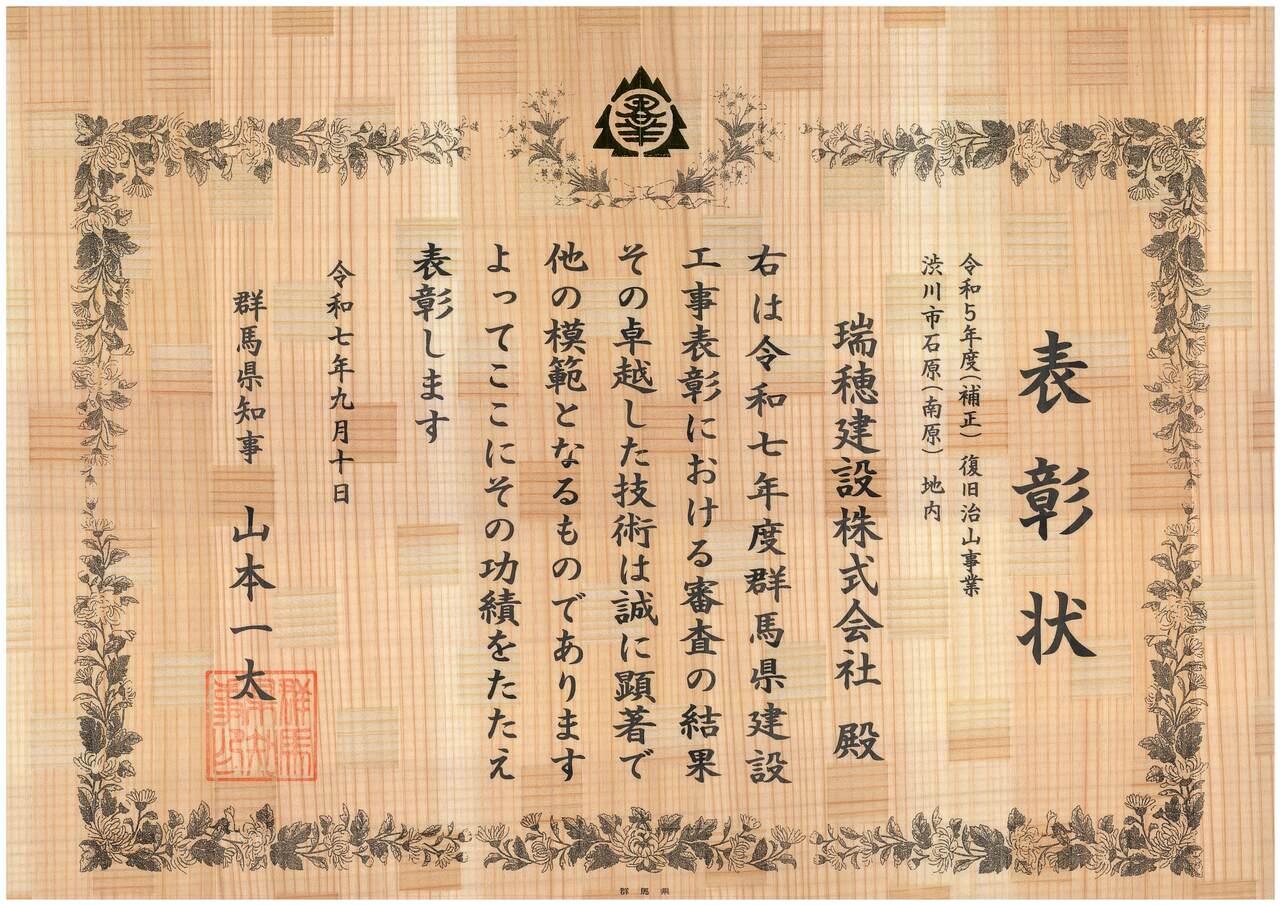 表彰状
令和5年度(補正)復旧治山事業
渋川市石原(南原)地内
瑞穂建設株式会社 殿
右は令和七年度群馬県建設
工事表彰における審査の結果
その卓越した技術は誠に顕著で
他の模範となるものであります
よってここにその功績をたたえ
表彰します
令和七年九月十日
群馬県知事 山本一太
群馬県